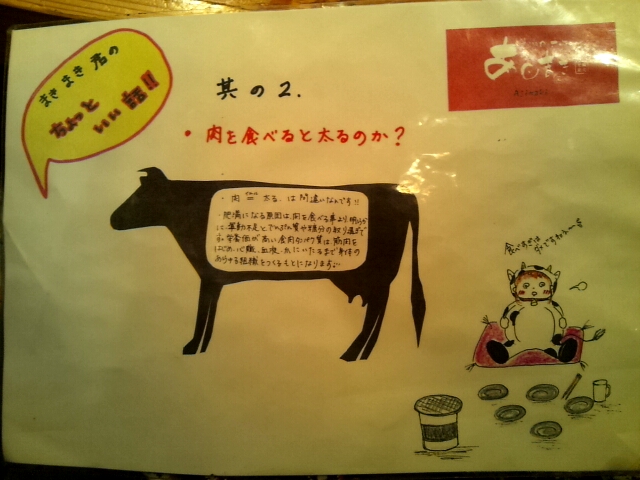 まきまき君の
ちょっと
いい話!!
其の2.
・肉を食べると太るのか?
・肉＝太る.は間違いなんです!!
・肥満になる原因は、肉を食べる事より、明らか
に、運動不足とでんぷん質や糖分の取り過ぎで
す。栄養価が高い食肉のタンパク質は、筋肉を
はじめ、心臓、血液、爪にいたるまで身体の
あらゆる組織をつくるもとになります。
食べすぎは